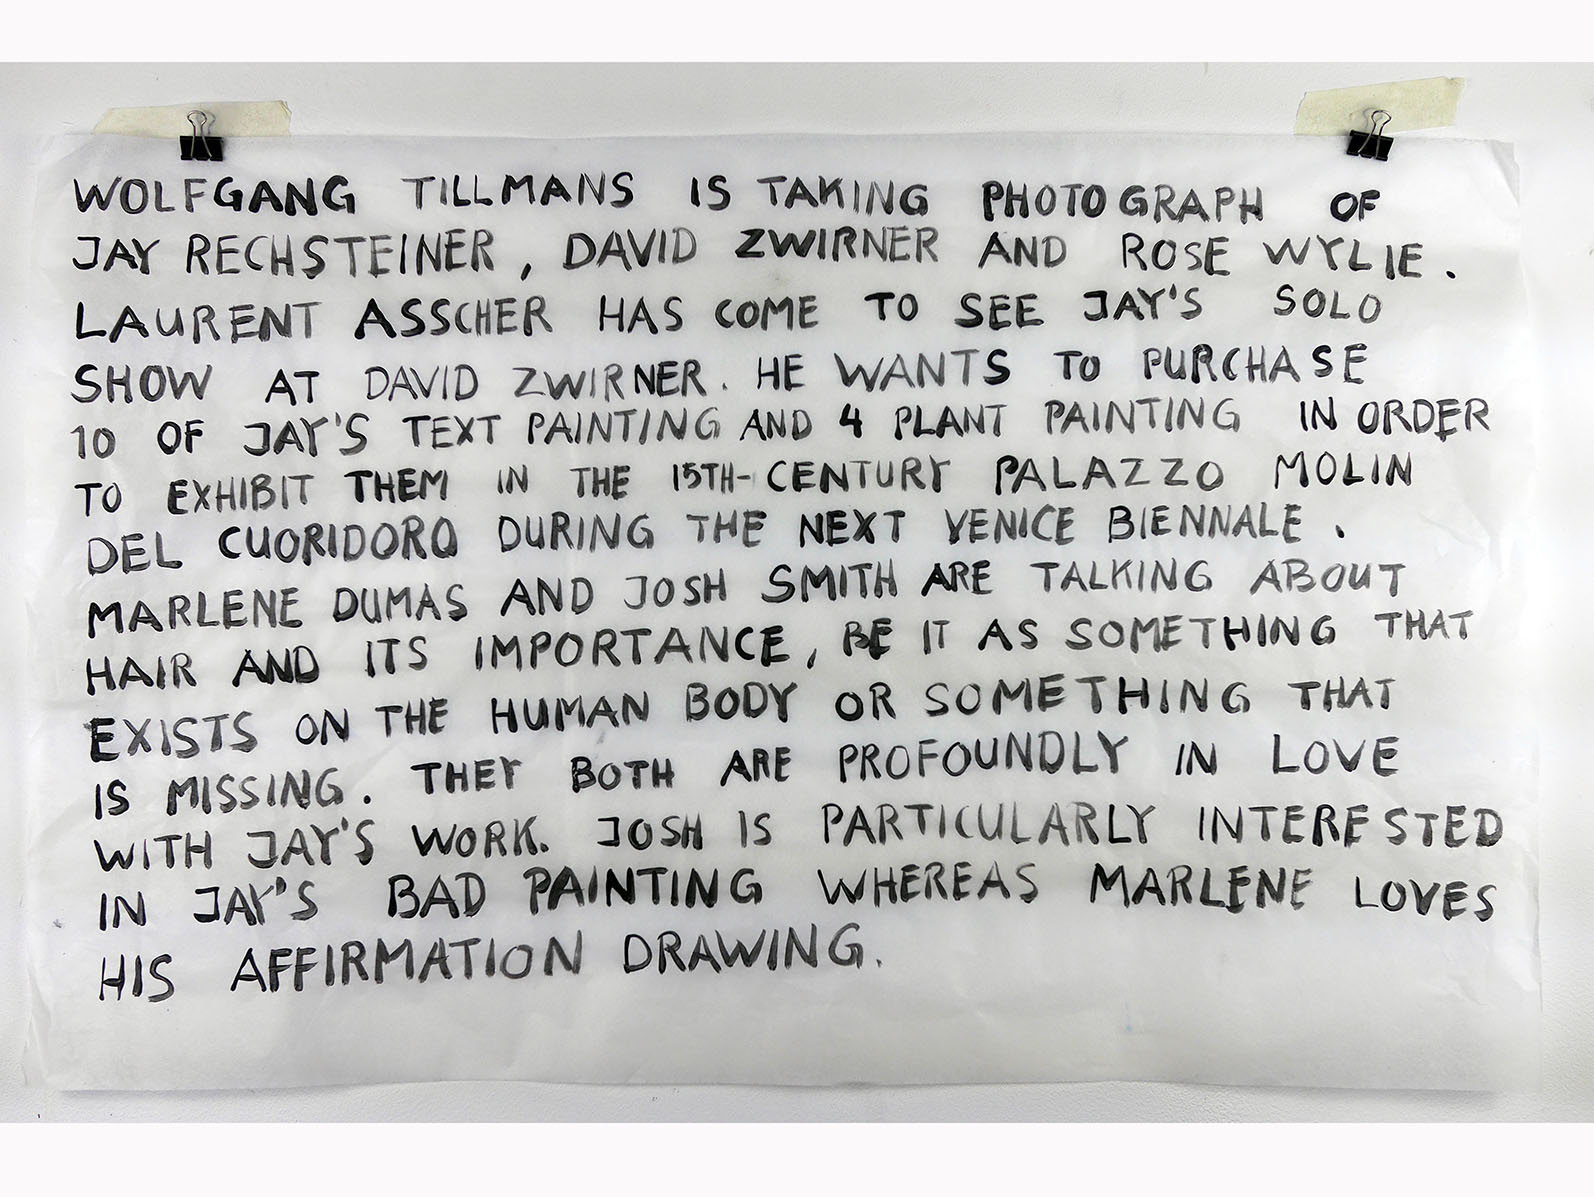 WOLFGANG TILLMANS IS TAKING PHOTOGRAPH OF
JAY RECHSTEINER, DAVID ZWIRNER AND ROSE WYLIE.
LAURENT ASSCHER HAS COME TO SEE JAY'S SOLO
SHOW AT DAVID ZWIRNER. HE WANTS TO PURCHASE
10 OF JAY'S TEXT PAINTING AND 4 PLANT PAINTING IN ORDER
TO EXHIBIT THEM IN THE 15TH-CENTURY PALAZZO MOLIN
DEL CUORIDORO DURING THE NEXT VENICE BIENNALE.
MARLENE DUMAS AND JOSH SMITH ARE TALKING ABOUT
HAIR AND ITS IMPORTANCE, BE IT AS SOMETHING THAT
EXISTS ON THE HUMAN BODY OR SOMETHING THAT
IS MISSING. THEY BOTH ARE PROFOUNDLY IN LOVE
WITH JAY'S WORK. JOSH IS PARTICULARLY INTERESTED
IN JAY'S BAD PAINTING WHEREAS MARLENE LOVES
HIS AFFIRMATION DRAWING.